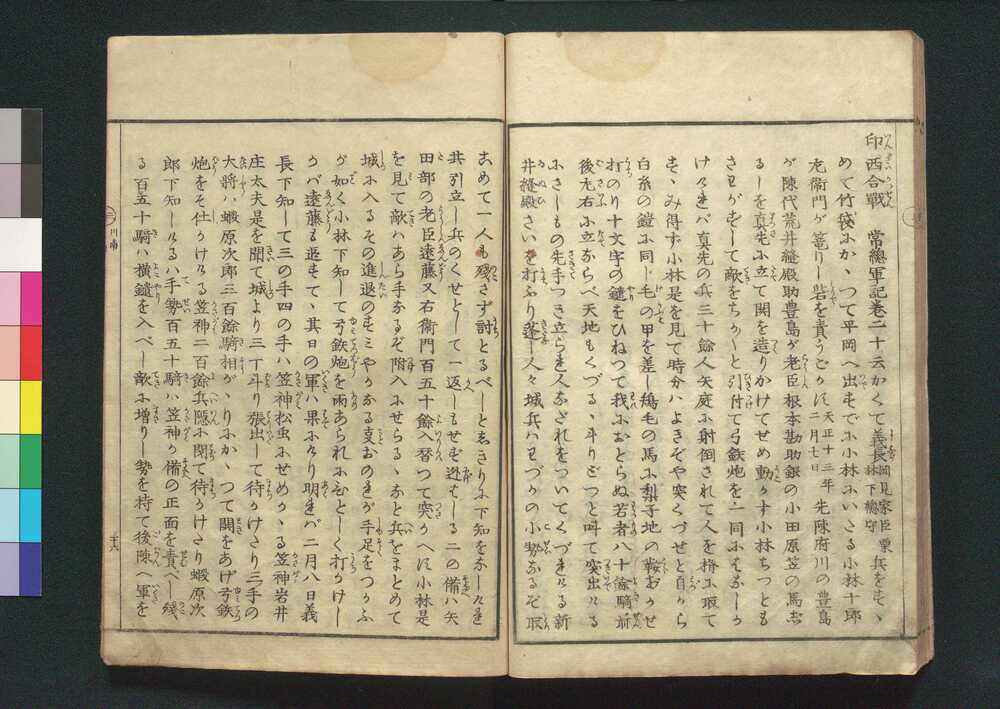 印西合戰 常總軍記卷二十云かくて義長 岡見家臣栗林下總守 兵をすゝ
めて竹袋にかゝつて平岡へ出すでに小林にいさる小林十郎
左衞門が篭りし砦を責うとかに 天正十三年二月七日 先陳府川の豊島
が陳代荒井縫殿助豊島が老臣根本勘助銀の小田原笠の馬志
るしを真先に立て関を造りかけてせめ動かす小林ちつとも
さわがずして敵をちかちかと引付て弓鉄炮を一同にはなしか
けゝれバ真先の兵三十餘人矢庭に射倒されて人を楯に取て
すゝみ得ず小林是を見て時分ハよきぞや突くづせと自から
白糸の鎧に同じ毛の甲を差し鴾毛の馬に梨子地の鞍おかせ
打のり十文字の鑓をひねつて我におとらぬ若者八十餘騎前
後左右に立ならべ天地もくづるゝ斗りどつと叫て突出ける
にさしもの先手つき立られ人なだれをついてくづれける新
井縫殿さいを打ふり蓬し人々城兵ハわづかの小勢なるぞ取
こめて一人も殘さず討とるべしとゑきりに下知をなしけれ
共引立し兵のくせとして一返しもせず迯はしる二の備ハ矢
田部の老臣遠藤又右衞門百五十餘入替つて突かへば小林是
を見て敵ハあら手なるぞ附入にせらるゝなと兵をまとめて
城に入るその進退のすミやかなる支おのれが手足をつかふ
が如く小林下知して弓鉄炮を雨あられにひとしく打かけし
かバ遠藤も返すて、其日の軍ハ果にけり明れバ二月八日義
長下知して三の手四の手ハ笠神松虫にせめかゝる笠神岩井
庄太夫是を聞て城より三丁斗り張出して待かけたり三手の
大將ハ蝦原次郎三百餘騎相がゝりにかゝつて鬨をあげ弓鉄
炮をそ仕かける笠神二百餘兵隠に閉て待かけたり蝦原次
郎下知しけるハ手勢百五十騎ハ笠神が備の正面を責べし殘
る百五十騎ハ横鑓を入べし敵に増りし勢を持て後陳へ軍を
川南
廿六